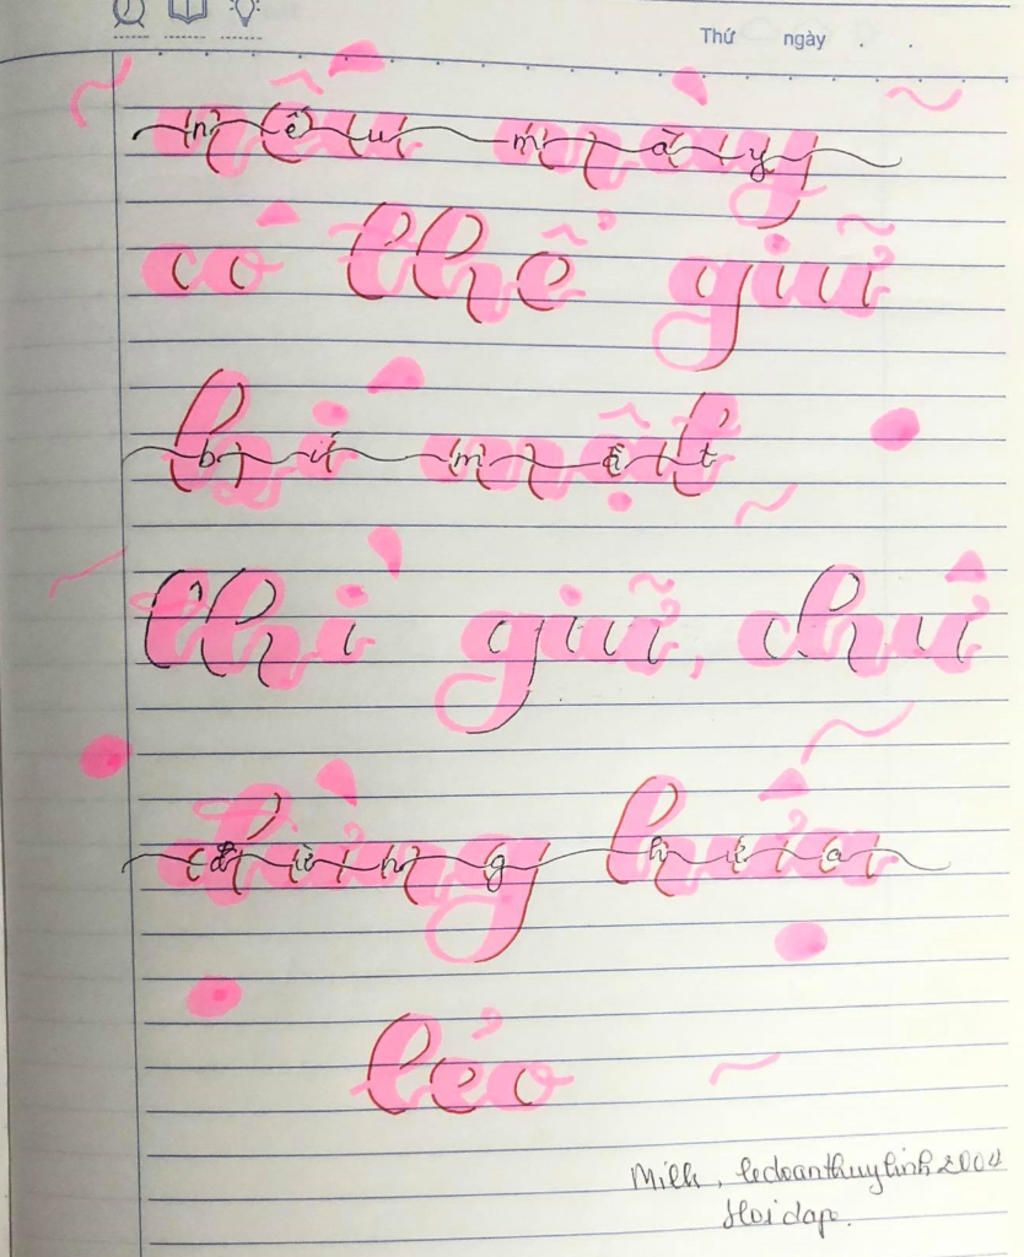 Thứ ngày . .
nếu mày
có thể giữ
bí mật
thì giữ, chứ
đừng hứa
lèo
Milk, ledoanthuylinh2004
Hoidap.